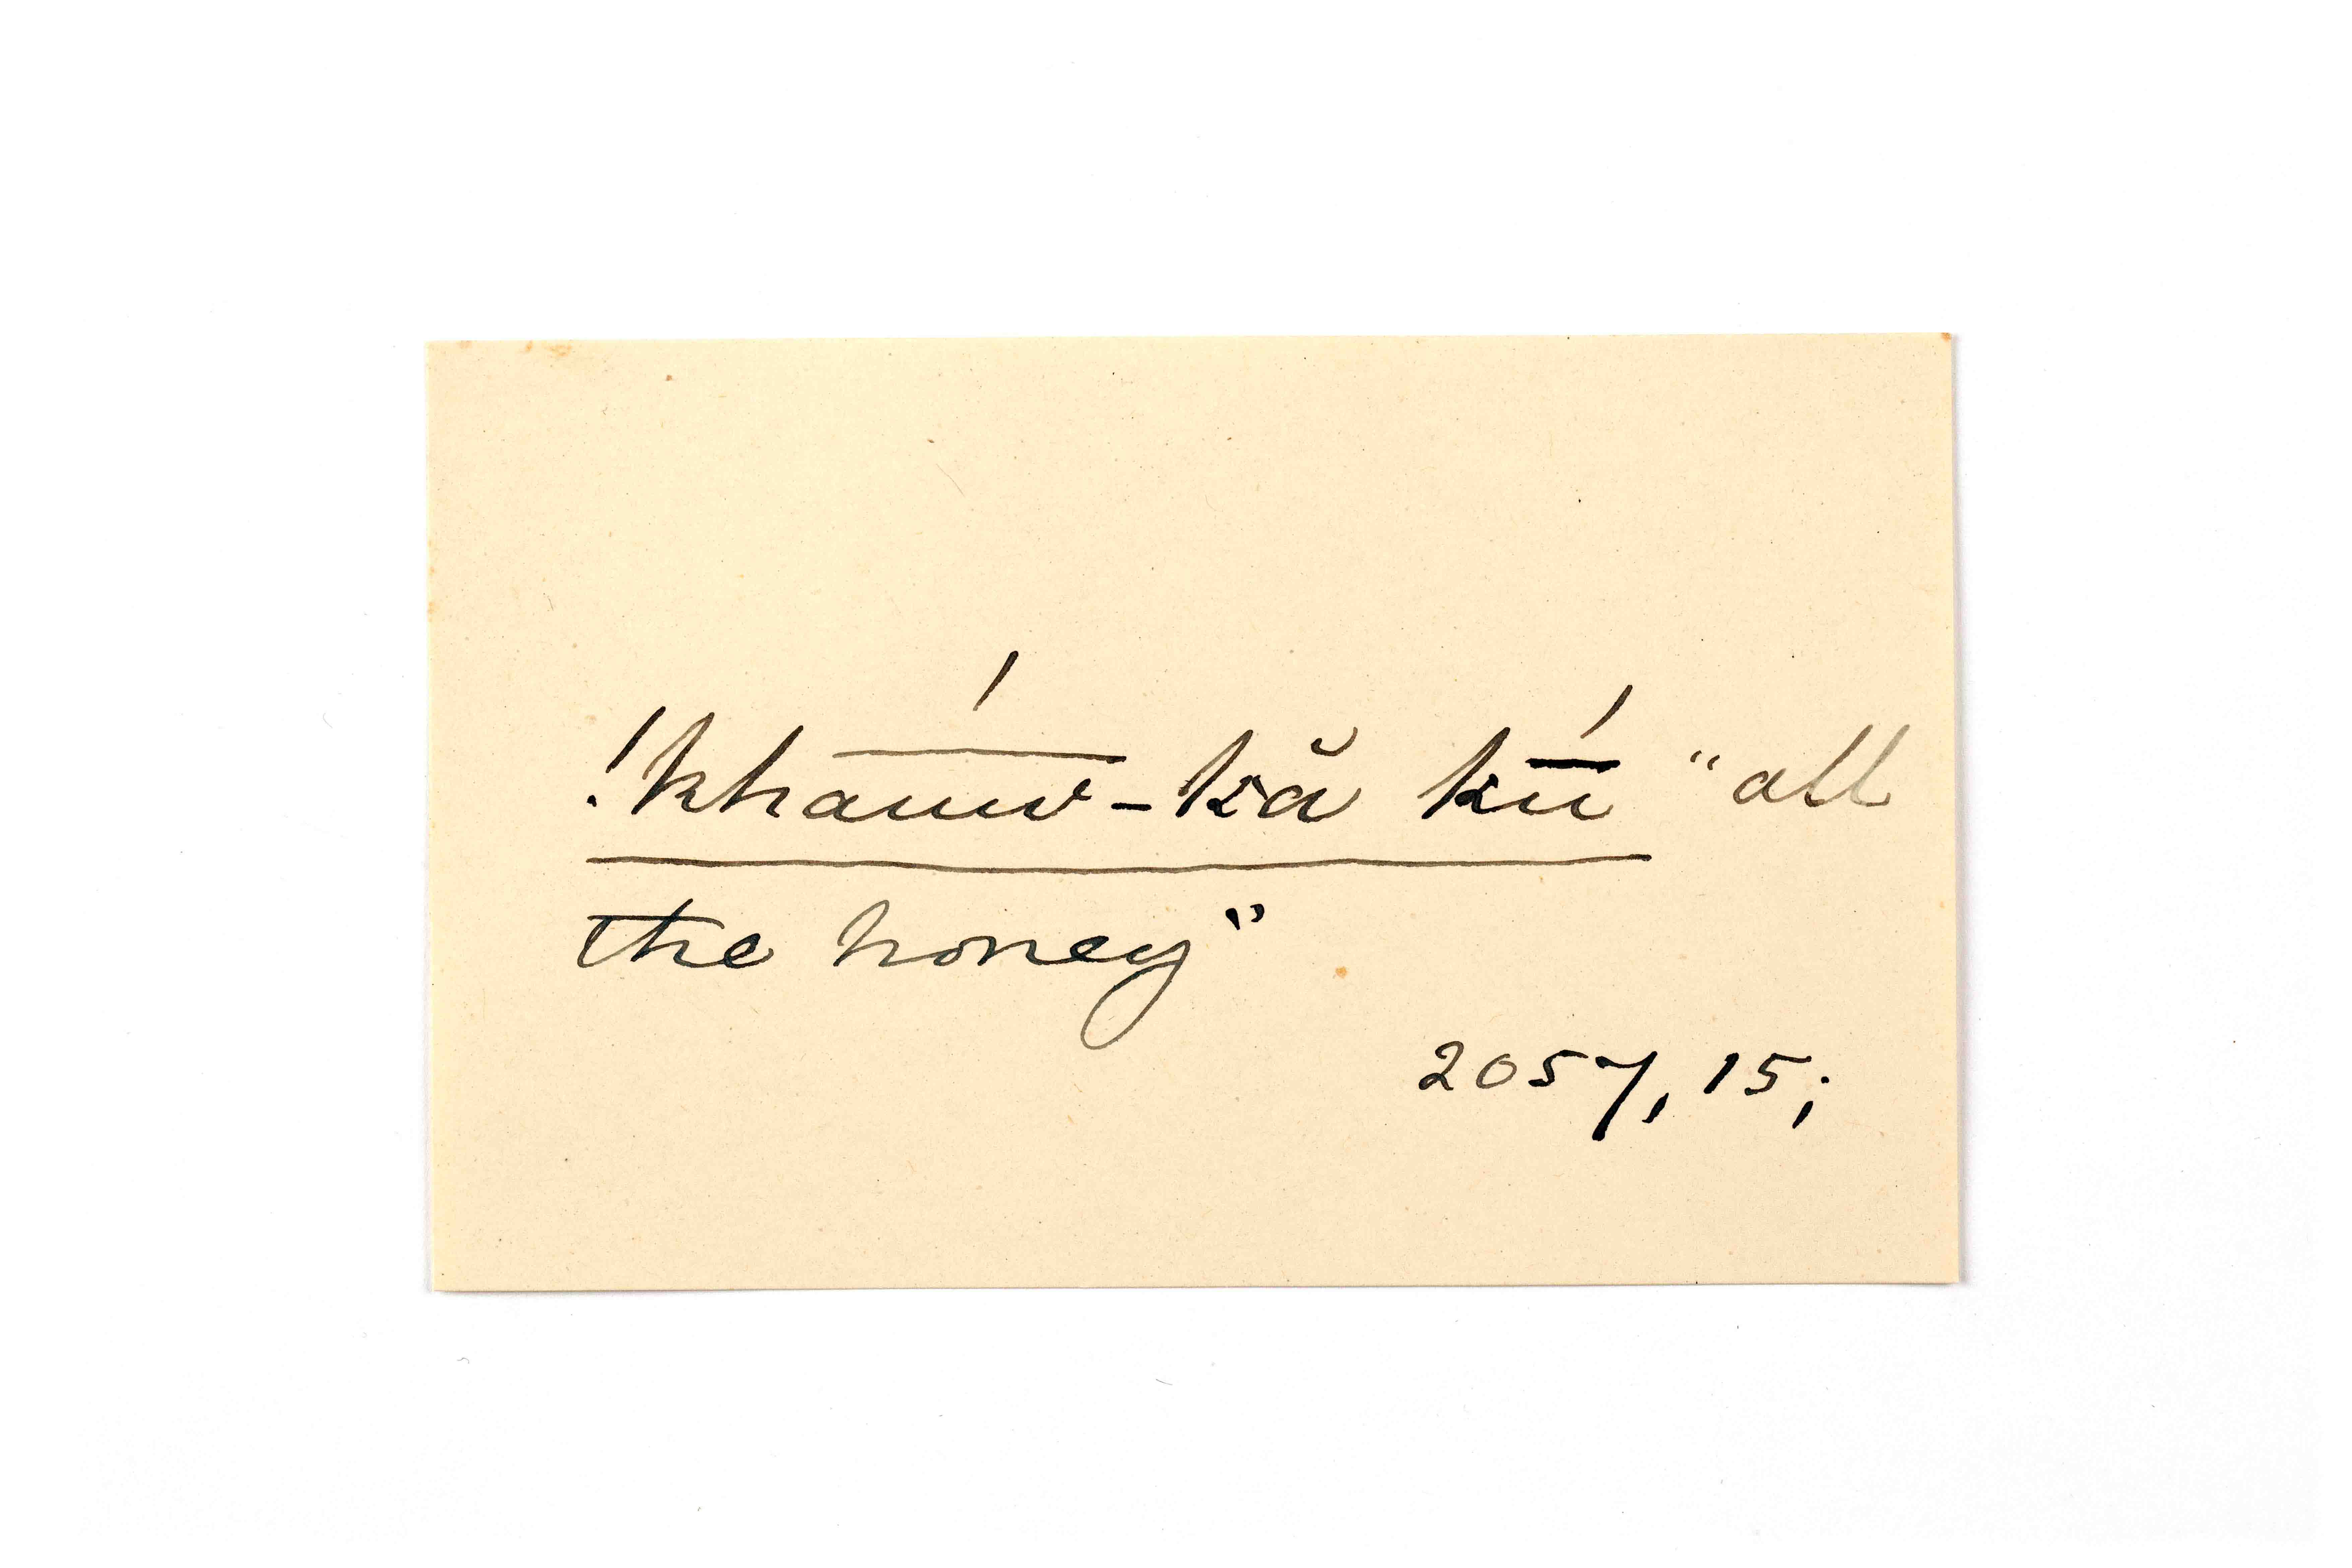 !kháuw̅-kă kū́ "all
the honey"
2057, 15;